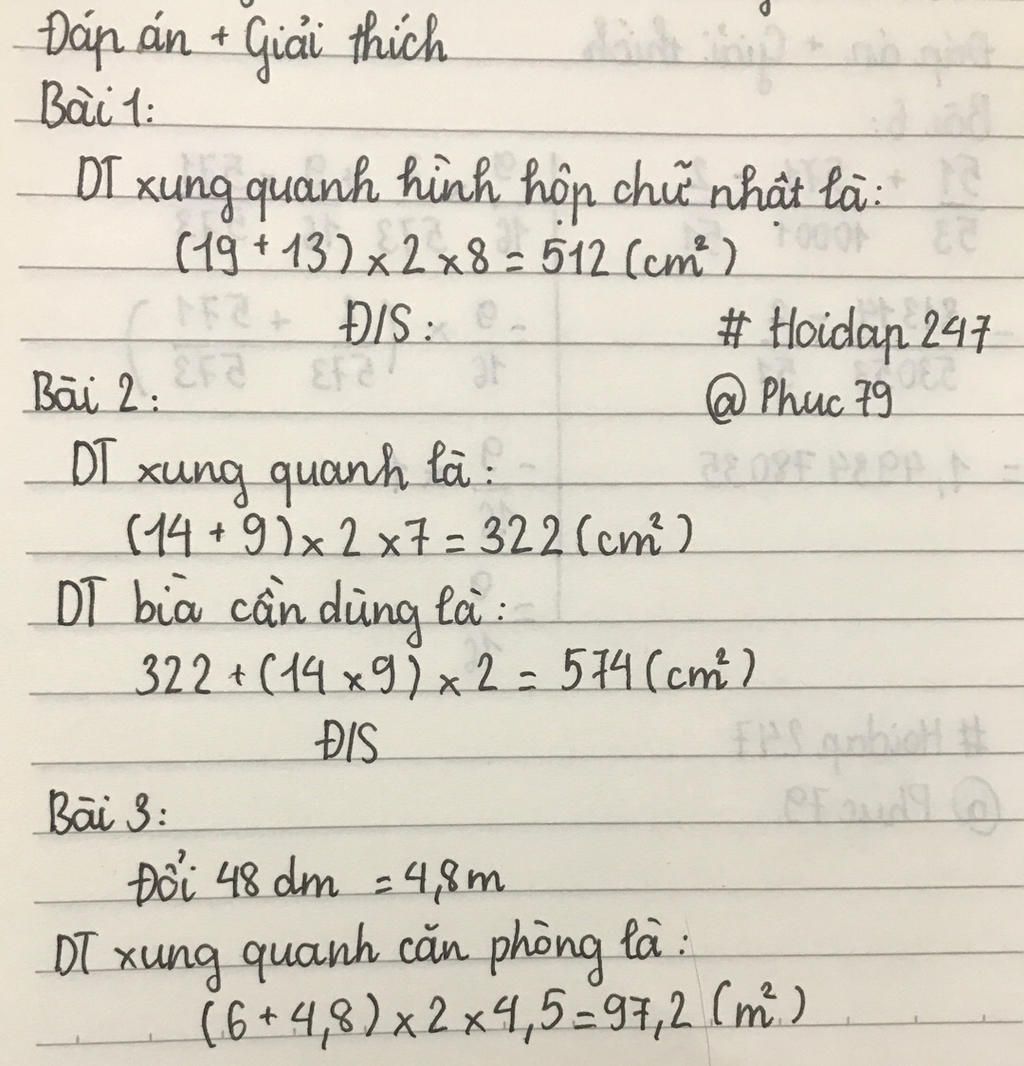 Đáp án + Giải thích
Bài 1:
DT xung quanh hình hộp chữ nhật là:
(19 + 13) x 2 x 8 = 512 (cm²)
Đ/S:
# Hoidap 247
Bài 2:
@ Phuc 79
DT xung quanh là:
(14 + 9) x 2 x 7 = 322 (cm²)
DT bìa cần dùng là:
322 + (14 x 9) x 2 = 574 (cm²)
Đ/S
Bài 3:
Đổi 48 dm = 4,8m
DT xung quanh căn phòng là:
(6 + 4,8) x 2 x 4,5 = 97,2 (m²)